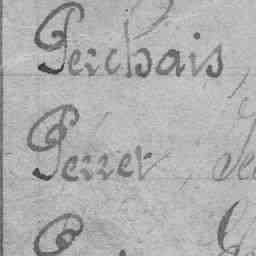 Perchais,
Perret